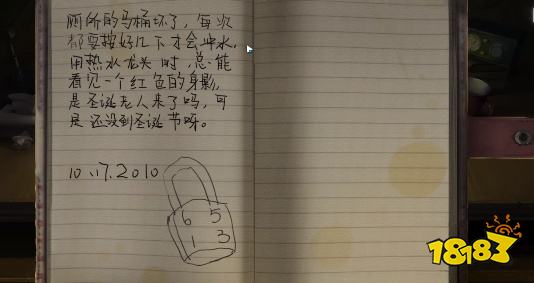 厕所的马桶坏了，每次
都要按好几下才会冲水，
用热水龙头时，总能
看见一个红色的身影，
是圣诞老人来了吗，可
是还没到圣诞节呀。
10.17.2010
6 5
1 3
18183